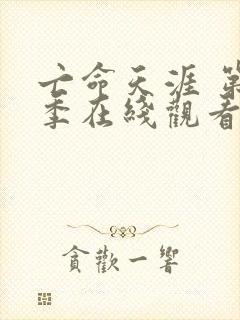 亡命天涯 第
季在綫觀看
貪歡一響